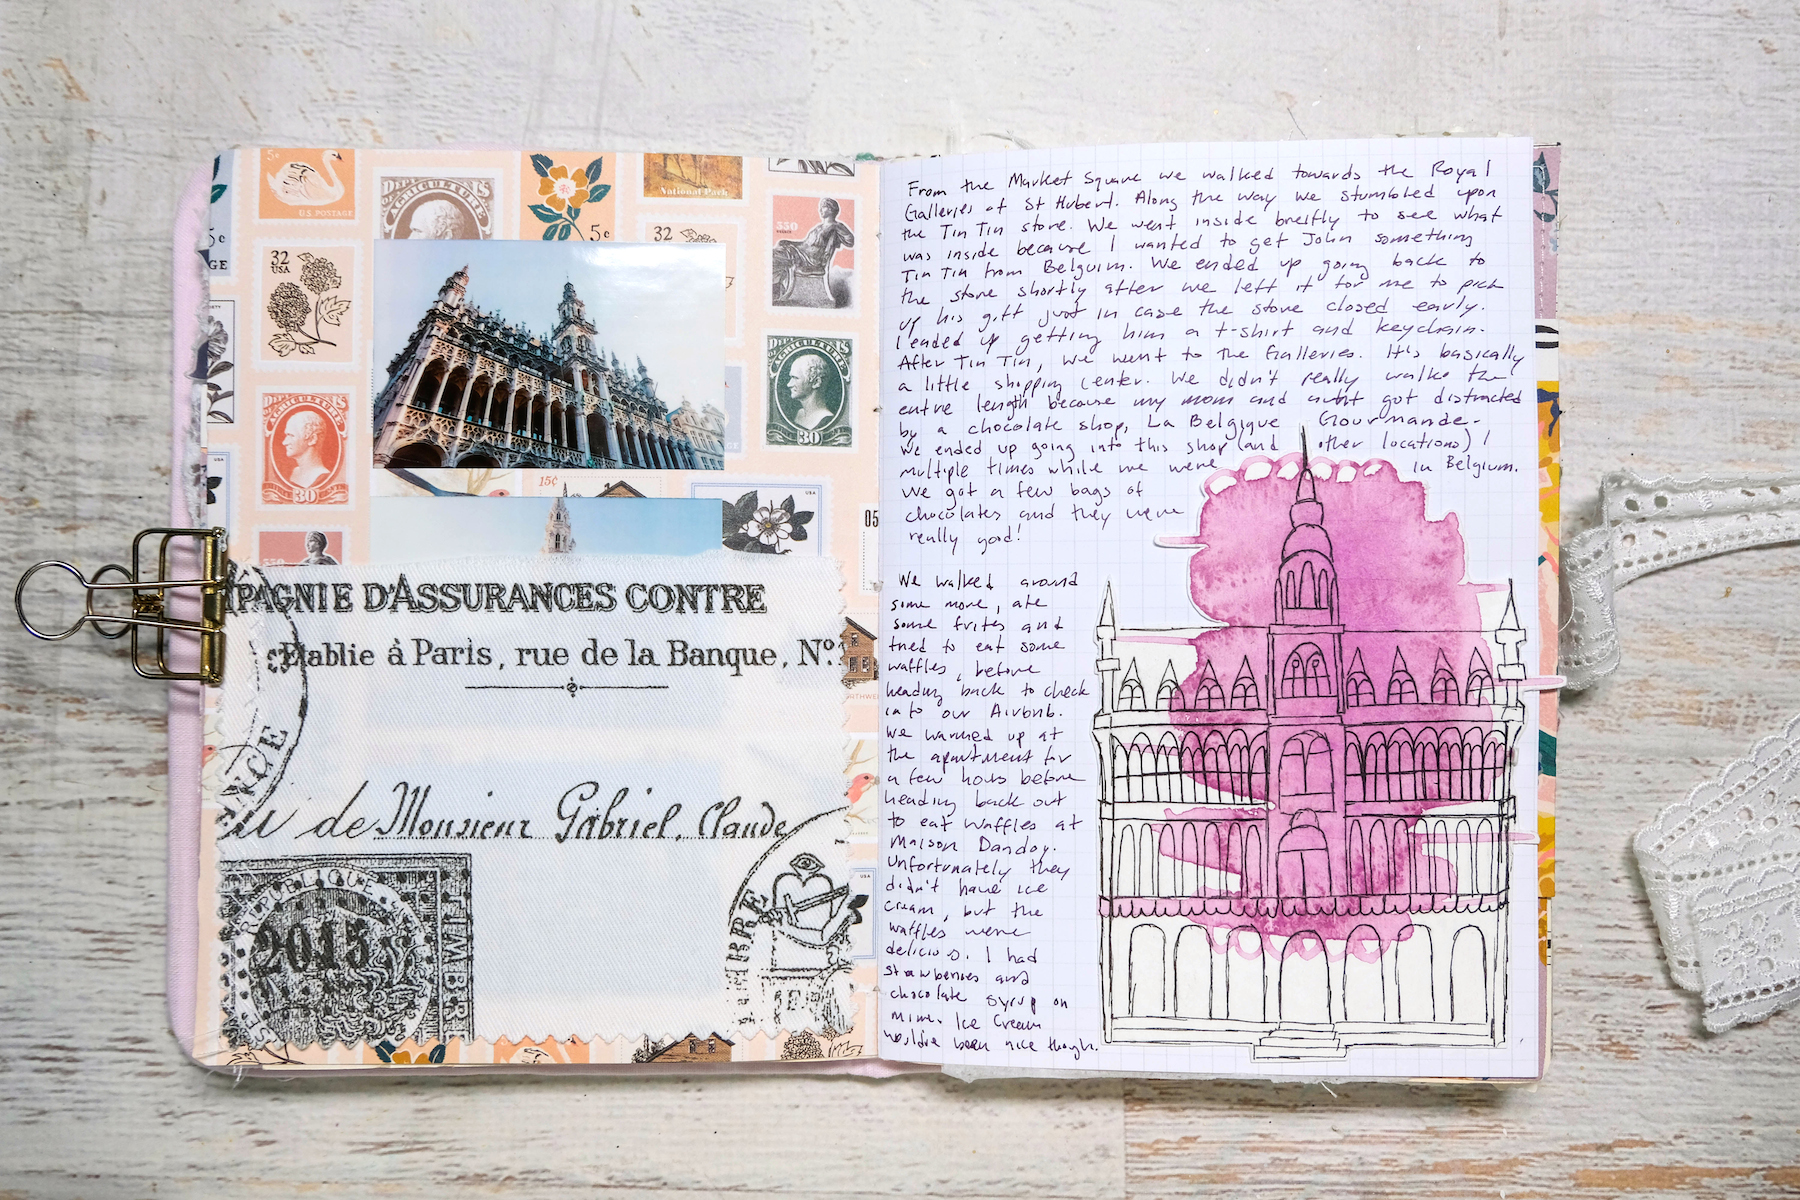 5¢
U.S. POSTAGE
AGRICULTURE
5¢
National Park
32
550
5¢
32
USA
GE
AGRICULTURE
30
AGRICULTURE
30
15¢
USA
05
PAGNIE D'ASSURANCES CONTRE
Etablie à Paris, rue de la Banque, Nº.
ENCE
de Monsieur Gabriel, Claude
USA
REPUBLIQUE
2015
TIMBR
From the Market Square we walked towards the Royal
Galleries of St Hubert. Along the way we stumbled upon
the Tin Tin store. We went inside breifly to see what
was inside because I wanted to get John something
Tin Tin from Belguim. We ended up going back to
the store shortly after we left it for me to pick
up his gift just in case the store closed early.
I ended up getting him a t-shirt and keychain.
After Tin Tin, we went to the Galleries. It's basically
a little shopping center. We didn't really walk the
entire length because my mom and aunt got distracted
by a chocolate shop, La Belgique Gourmande.
We ended up going into this shop (and other locations)
multiple times while we were in Belgium.
We got a few bags of
chocolates and they were
really good!
We walked around
some more, ate
some frites and
tried to eat some
waffles, before
heading back to check
into our Airbnb.
We warmed up at
the apartment for
a few hours before
heading back out
to eat waffles at
Maison Dandoy.
Unfortunately they
didn't have ice
cream, but the
waffles were
delicious. I had
strawberries and
chocolate syrup on
mine. Ice Cream
would've been nice though.